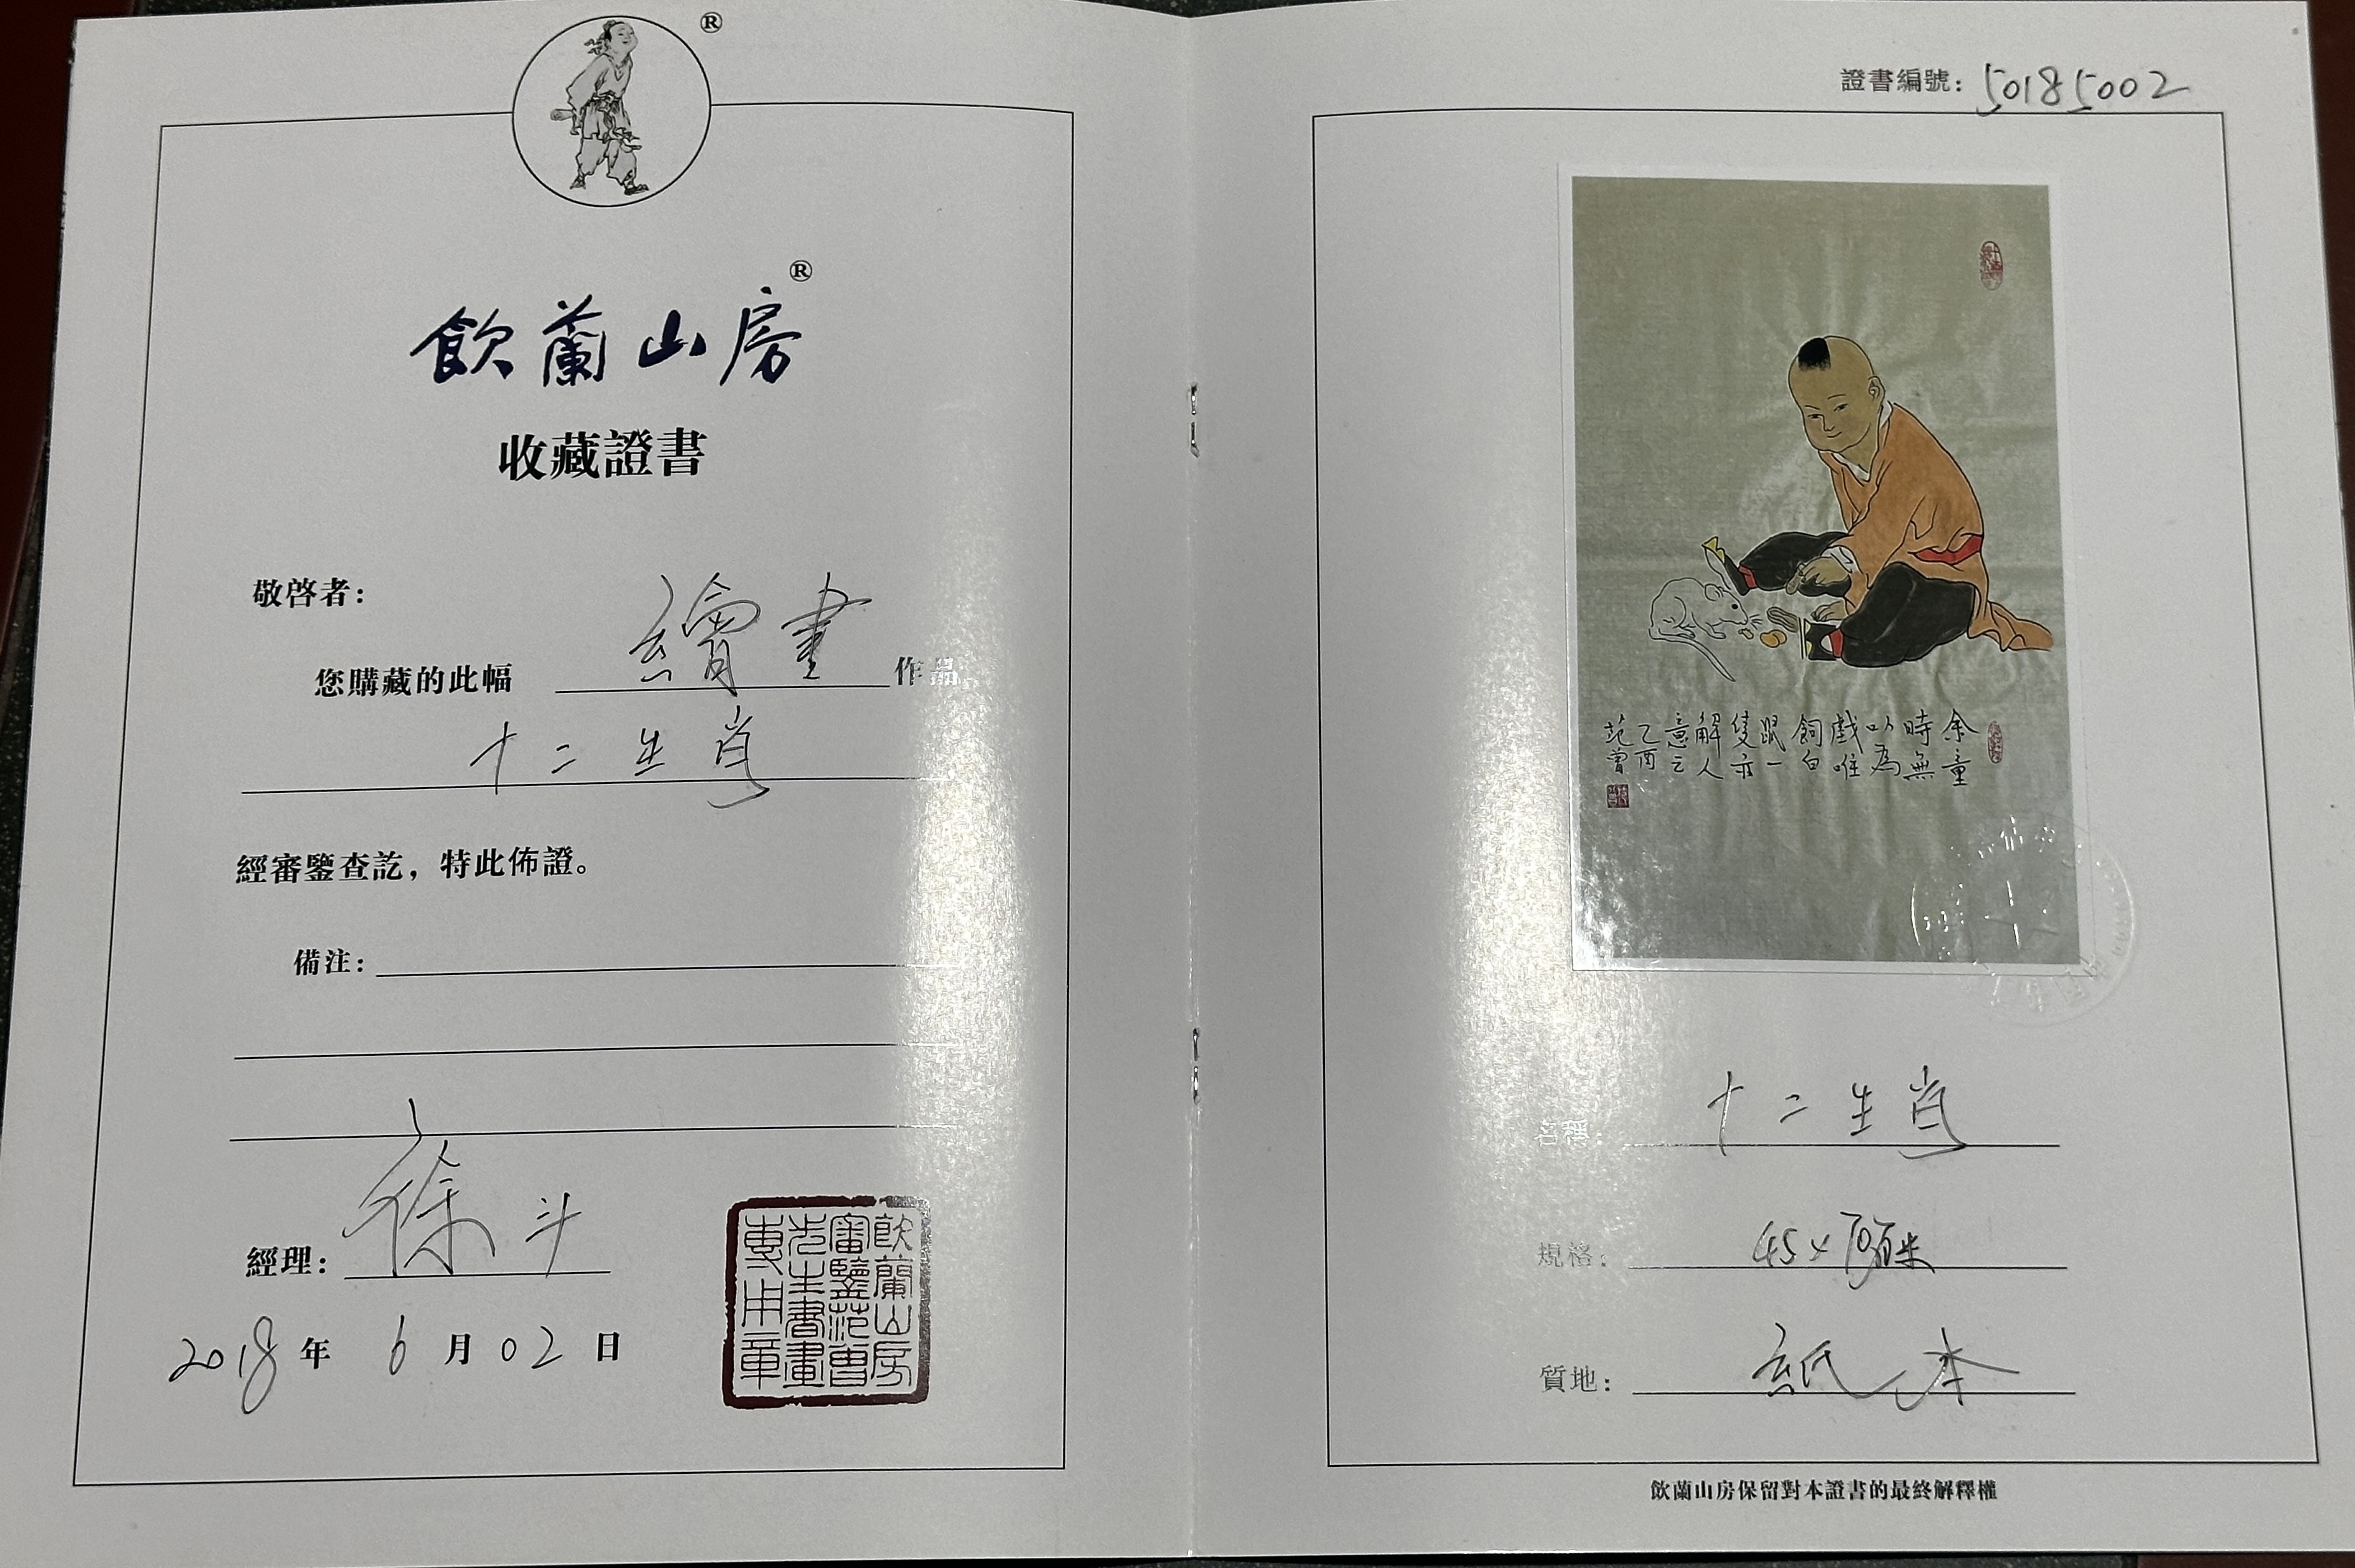 ®
飲蘭山房®
收藏證書
敬啓者:
您購藏的此幅 繪畫 作品
十二生肖
經審鑒查訖，特此佈證。
備注:
經理: 徐斗
2018年6月02日
飲蘭山房
審鑒范曾
先生書畫
專用章
證書編號: 50185002
余童
時無
以為
戲唯
飼白
鼠一
隻亦
解人
意三
乙酉
范曾
名稱: 十二生肖
規格: 45x70厘米
質地: 紙本
飲蘭山房保留對本證書的最終解釋權